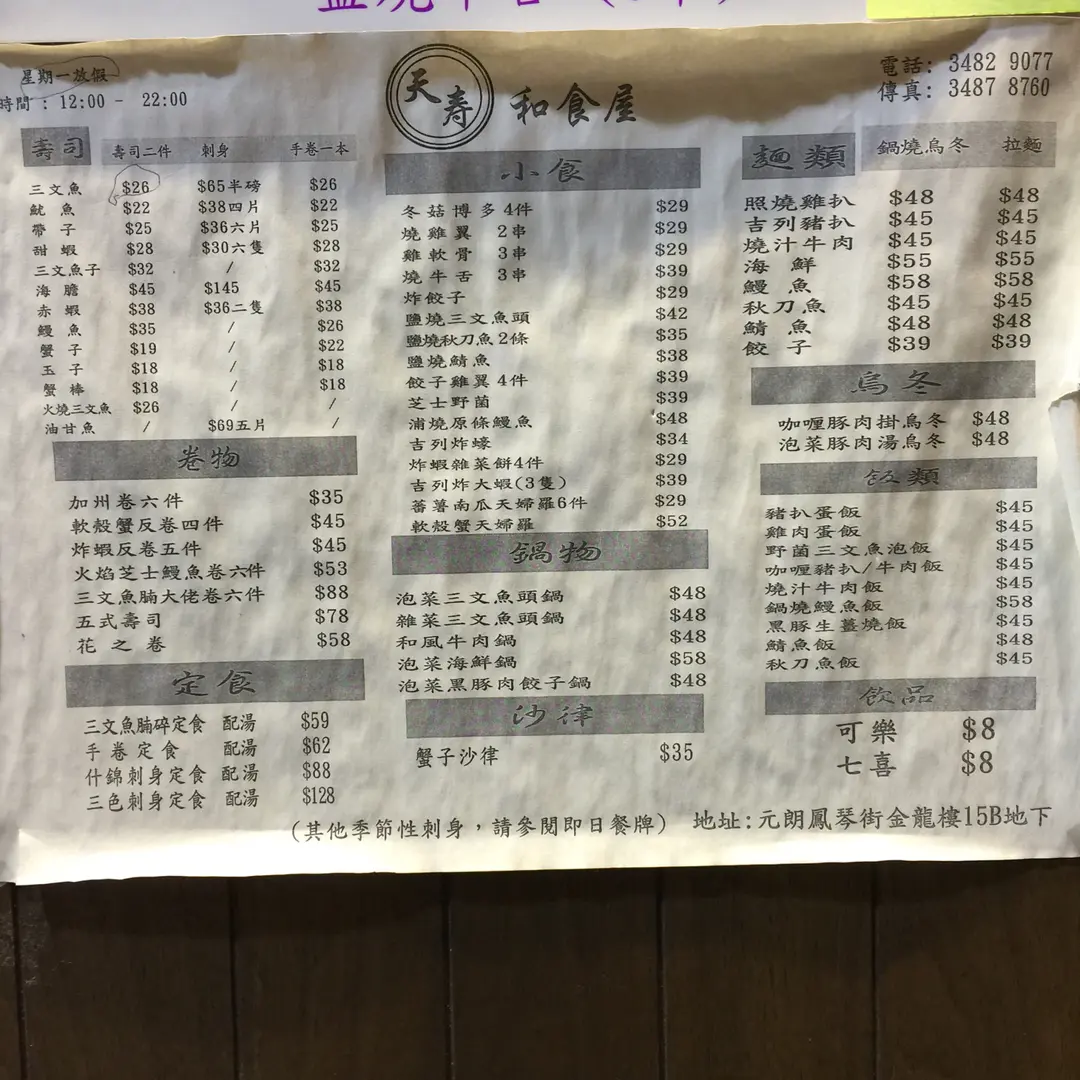 星期一放假
時間 : 12:00 - 22:00
天寿 和食屋
電話: 3482 9077
傳真: 3487 8760
壽司 壽司二件 刺身 手卷一本
三文魚 $26 $65半磅 $26
魷魚 $22 $38四片 $22
帶子 $25 $36六片 $25
甜蝦 $28 $30六隻 $28
三文魚子 $32 / $32
海膽 $45 $145 $45
赤蝦 $38 $36二隻 $38
鰻魚 $35 / $26
蟹子 $19 / $22
玉子 $18 / $18
蟹棒 $18 / $18
火燒三文魚 $26 / /
油甘魚 / $69五片 /
卷物
加州卷六件 $35
軟殼蟹反卷四件 $45
炸蝦反卷五件 $45
火焰芝士鰻魚卷六件 $53
三文魚腩大佬卷六件 $88
五式壽司 $78
花之卷 $58
定食
三文魚腩碎定食 配湯 $59
手卷定食 配湯 $62
什錦刺身定食 配湯 $88
三色刺身定食 配湯 $128
小食
冬菇博多4件 $29
燒雞翼 2串 $29
雞軟骨 3串 $29
燒牛舌 3串 $39
炸餃子 $29
鹽燒三文魚頭 $42
鹽燒秋刀魚2條 $35
鹽燒鯖魚 $38
餃子雞翼4件 $39
芝士野菌 $39
浦燒原條鰻魚 $48
吉列炸蠔 $34
炸蝦雜菜餅4件 $29
吉列炸大蝦(3隻) $39
蕃薯南瓜天婦羅6件 $29
軟殼蟹天婦羅 $52
鍋物
泡菜三文魚頭鍋 $48
雜菜三文魚頭鍋 $48
和風牛肉鍋 $48
泡菜海鮮鍋 $58
泡菜黑豚肉餃子鍋 $48
沙律
蟹子沙律 $35
麵類 鍋燒烏冬 拉麵
照燒雞扒 $48 $48
吉列豬扒 $45 $45
燒汁牛肉 $45 $45
海鮮 $55 $55
鰻魚 $58 $58
秋刀魚 $45 $45
鯖魚 $48 $48
餃子 $39 $39
烏冬
咖喱豚肉掛烏冬 $48
泡菜豚肉湯烏冬 $48
飯類
豬扒蛋飯 $45
雞肉蛋飯 $45
野菌三文魚泡飯 $45
咖喱豬扒/牛肉飯 $45
燒汁牛肉飯 $45
鍋燒鰻魚飯 $58
黑豚生薑燒飯 $45
鯖魚飯 $48
秋刀魚飯 $45
飲品
可樂 $8
七喜 $8
(其他季節性刺身，請參閱即日餐牌) 地址:元朗鳳琴街金龍樓15B地下